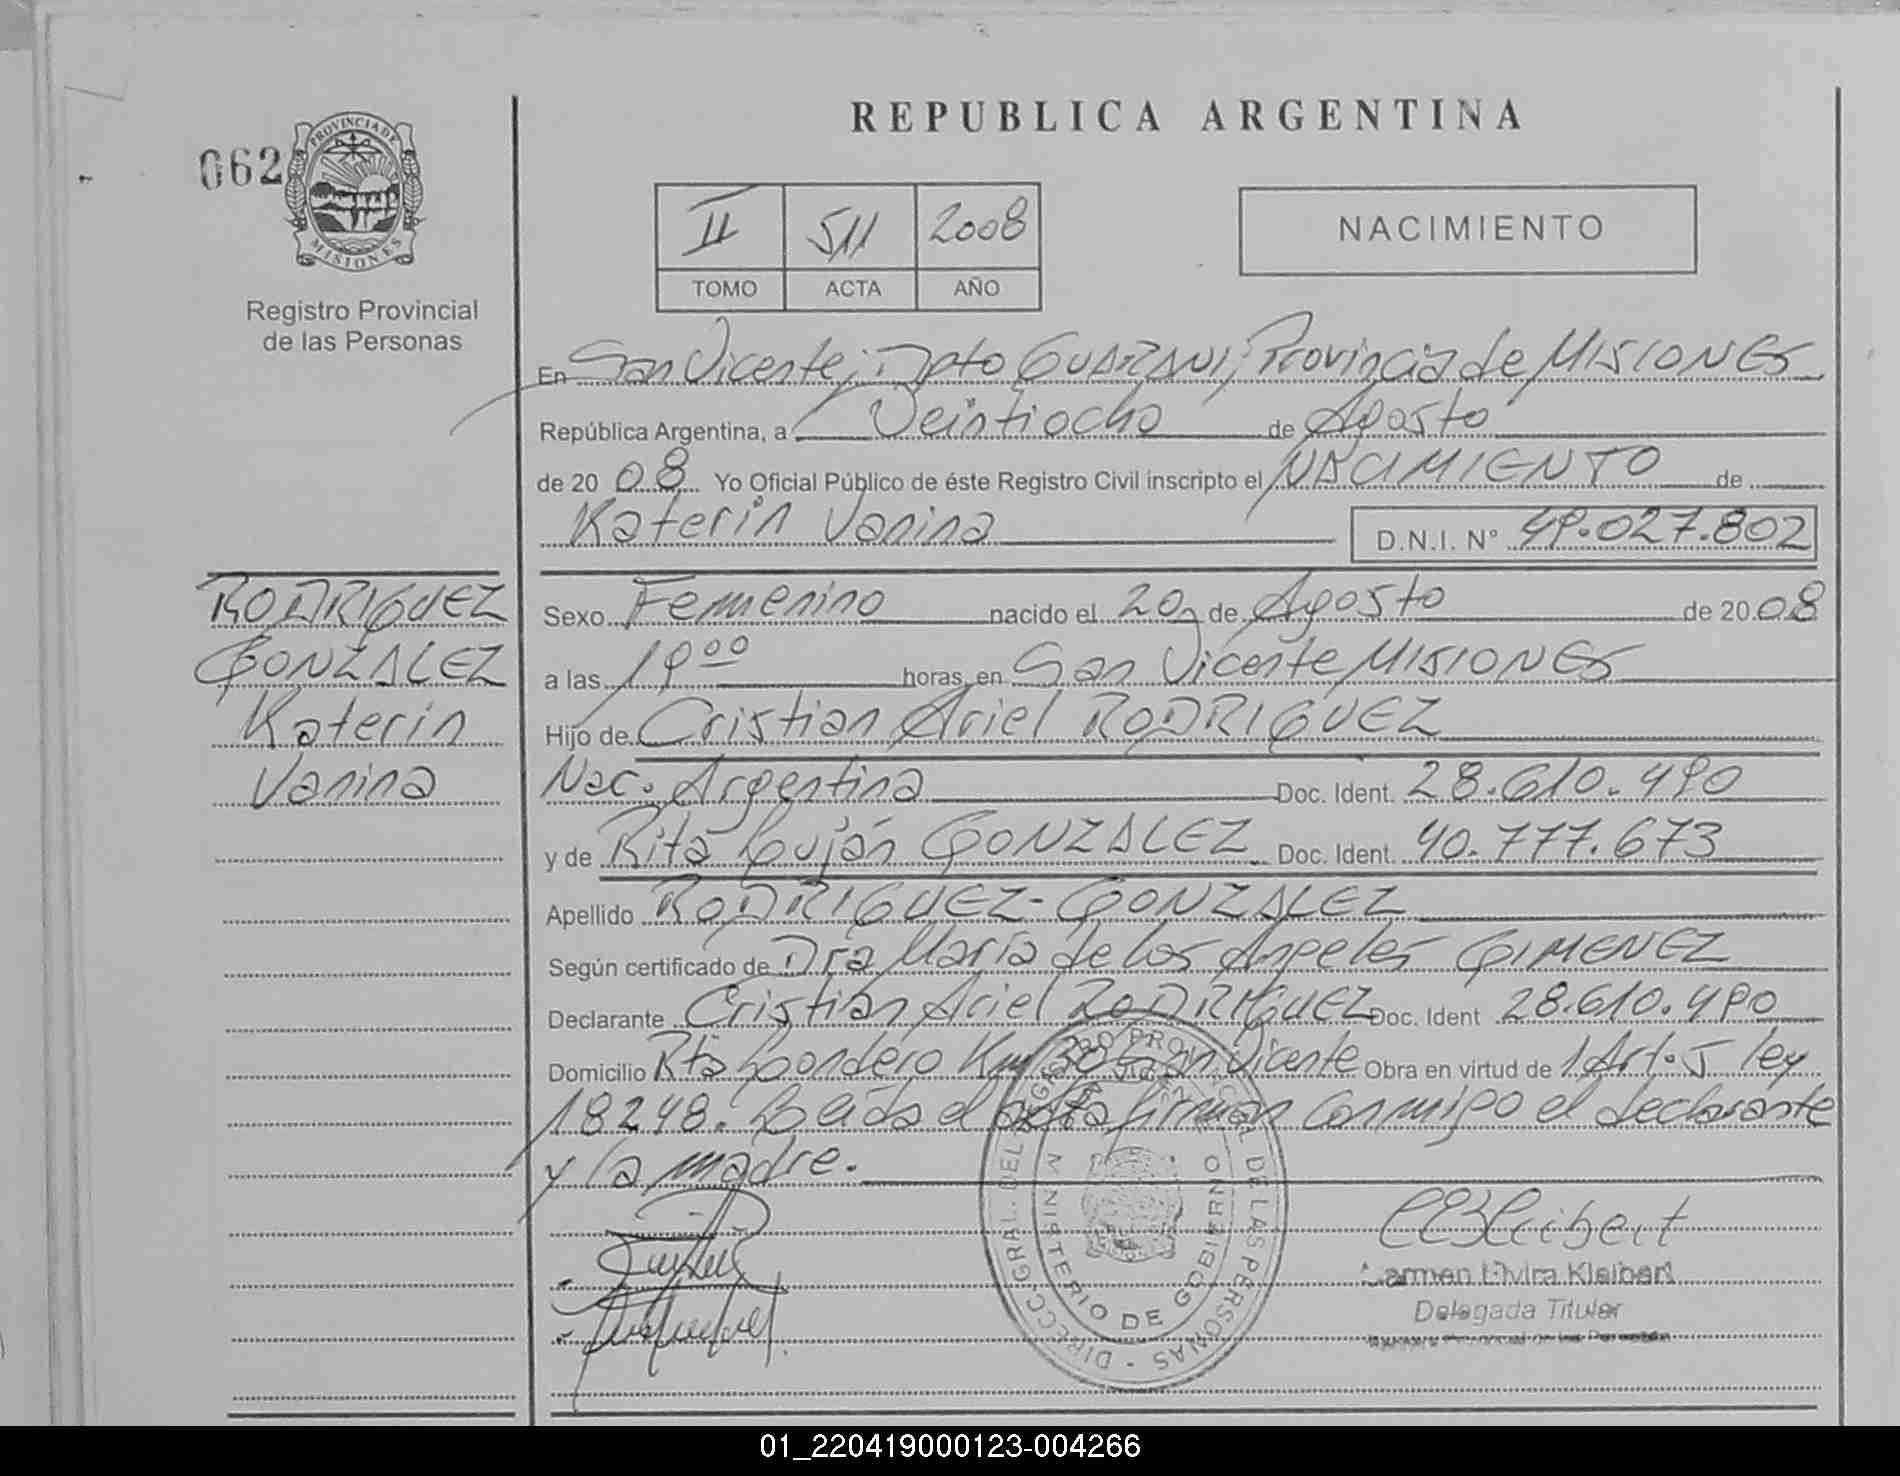 REPUBLICA ARGENTINA
062
PROVINCIA DE
MISIONES
Registro Provincial
de las Personas
II 511 2008
TOMO ACTA AÑO
NACIMIENTO
En San Vicente; Dpto GUARANI; Provincia de MISIONES
República Argentina, a Veintiocho de Agosto
de 2008 Yo Oficial Público de éste Registro Civil inscripto el NACIMIENTO de
Katerin Vanina D.N.I. Nº 49.027.802
RODRIGUEZ
GONZALEZ
Katerin
Vanina
Sexo Femenino nacido el 20 de Agosto de 2008
a las 19⁰⁰ horas, en San Vicente MISIONES
Hijo de Cristian Ariel RODRIGUEZ
Nac. Argentina Doc. Ident. 28.610.490
y de Rita Luján GONZALEZ Doc. Ident. 40.777.673
Apellido RODRIGUEZ-GONZALEZ
Según certificado de Dra María de los Angeles GIMENEZ
Declarante Cristian Ariel RODRIGUEZ Doc. Ident 28.610.490
Domicilio Rta Londero Km San Vicente Obra en virtud de 1 Art. 5 ley
18248. Leída el acta firman conmigo el declarante
y la madre.
DIRECC. GRAL. DEL REGISTRO PROVINCIAL DE LAS PERSONAS
MINISTERIO DE GOBIERNO
Carmen Elvira Kleibert
Delegada Titular
Registro Provincial de las Personas
01_220419000123-004266